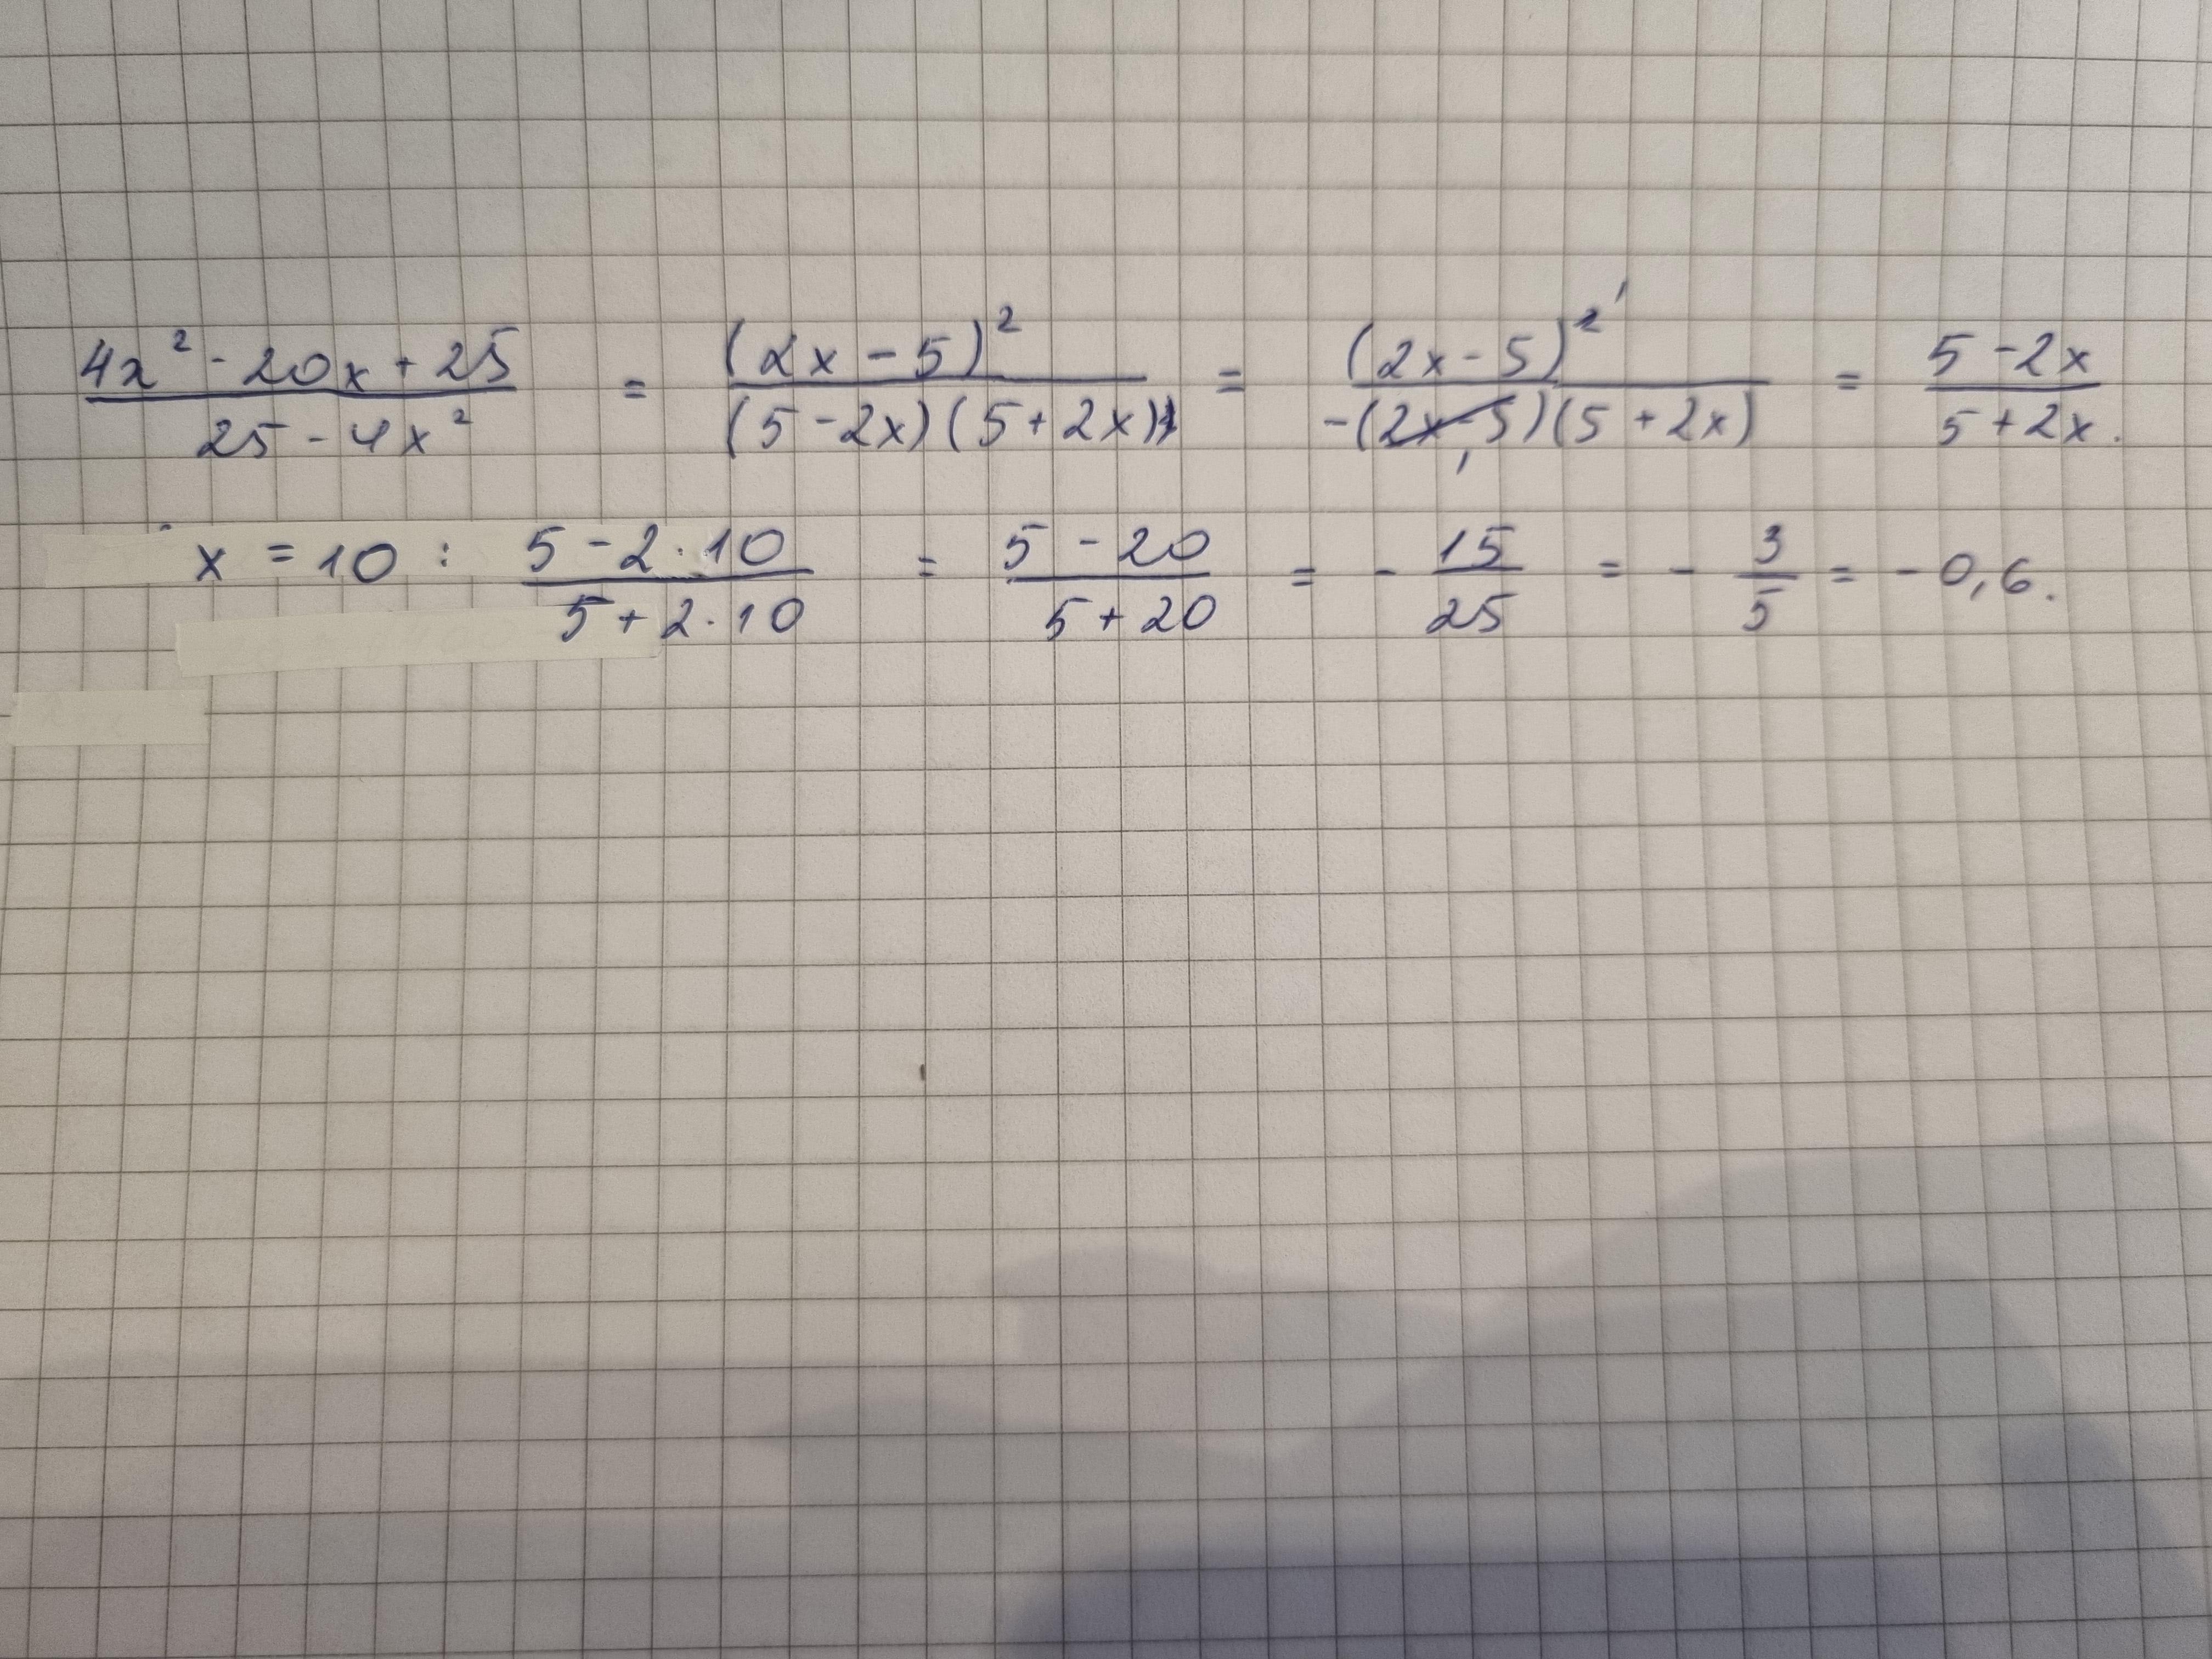 (4x² - 20x + 25)/(25 - 4x²) = (2x - 5)²/((5 - 2x)(5 + 2x)) = (2x - 5)²/(-(2x - 5)(5 + 2x)) = (5 - 2x)/(5 + 2x).
x = 10 : (5 - 2·10)/(5 + 2·10) = (5 - 20)/(5 + 20) = - 15/25 = - 3/5 = - 0,6.